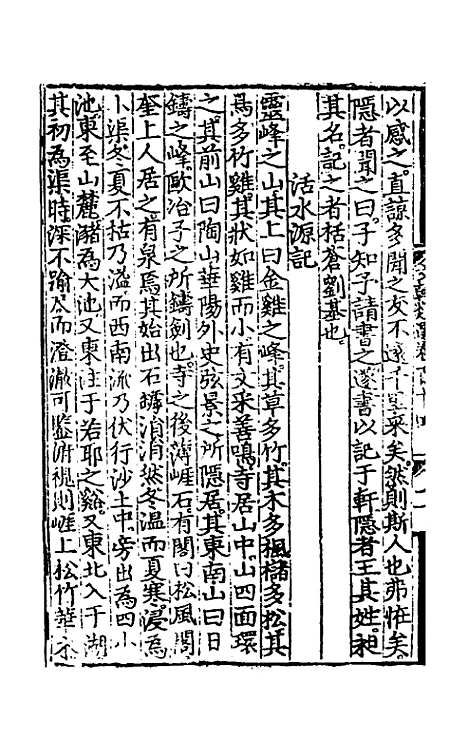 以感之直諒多聞之友不遠千里來矣然則斯人也弗怪矣
隱者聞之曰子知予請書之遂書以記于軒隱者王其姓㫤
其名記之者栝蒼劉基也
活水源記
靈峰之山其上曰金雞之峰其草多竹其木多楓櫧多松其
鳥多竹雞其狀如雞而小有文采善鳴寺居山中山四面環
之其前山曰陶山華陽外史弦景之所隱居其東南山曰日
鑄之峰歐冶子之所鑄劍也寺之後薄崖石有閣曰松風閣
奎上人居之有泉焉其始出石罅涓涓然冬温而夏寒浸爲
小渠冬夏不枯乃溢而西南流乃伏行沙土中旁出為四小
池東至山麓瀦為大池又東注于若耶之谿又東北入于湖
其初為渠時深不踰尺而澄澈可鑒俯視則崖上松竹華木